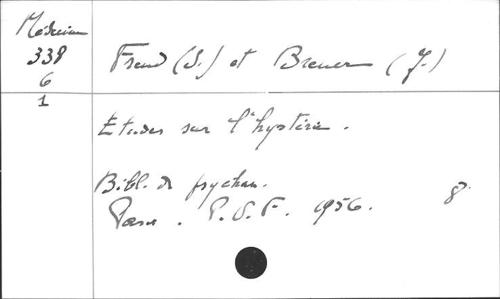 Médecine
339
6
1
Freud (S.) et Breuer (J.)
Etudes sur l'hystérie.
Bibl. de psychan.
Paris. P.U.F. 1956. 8°